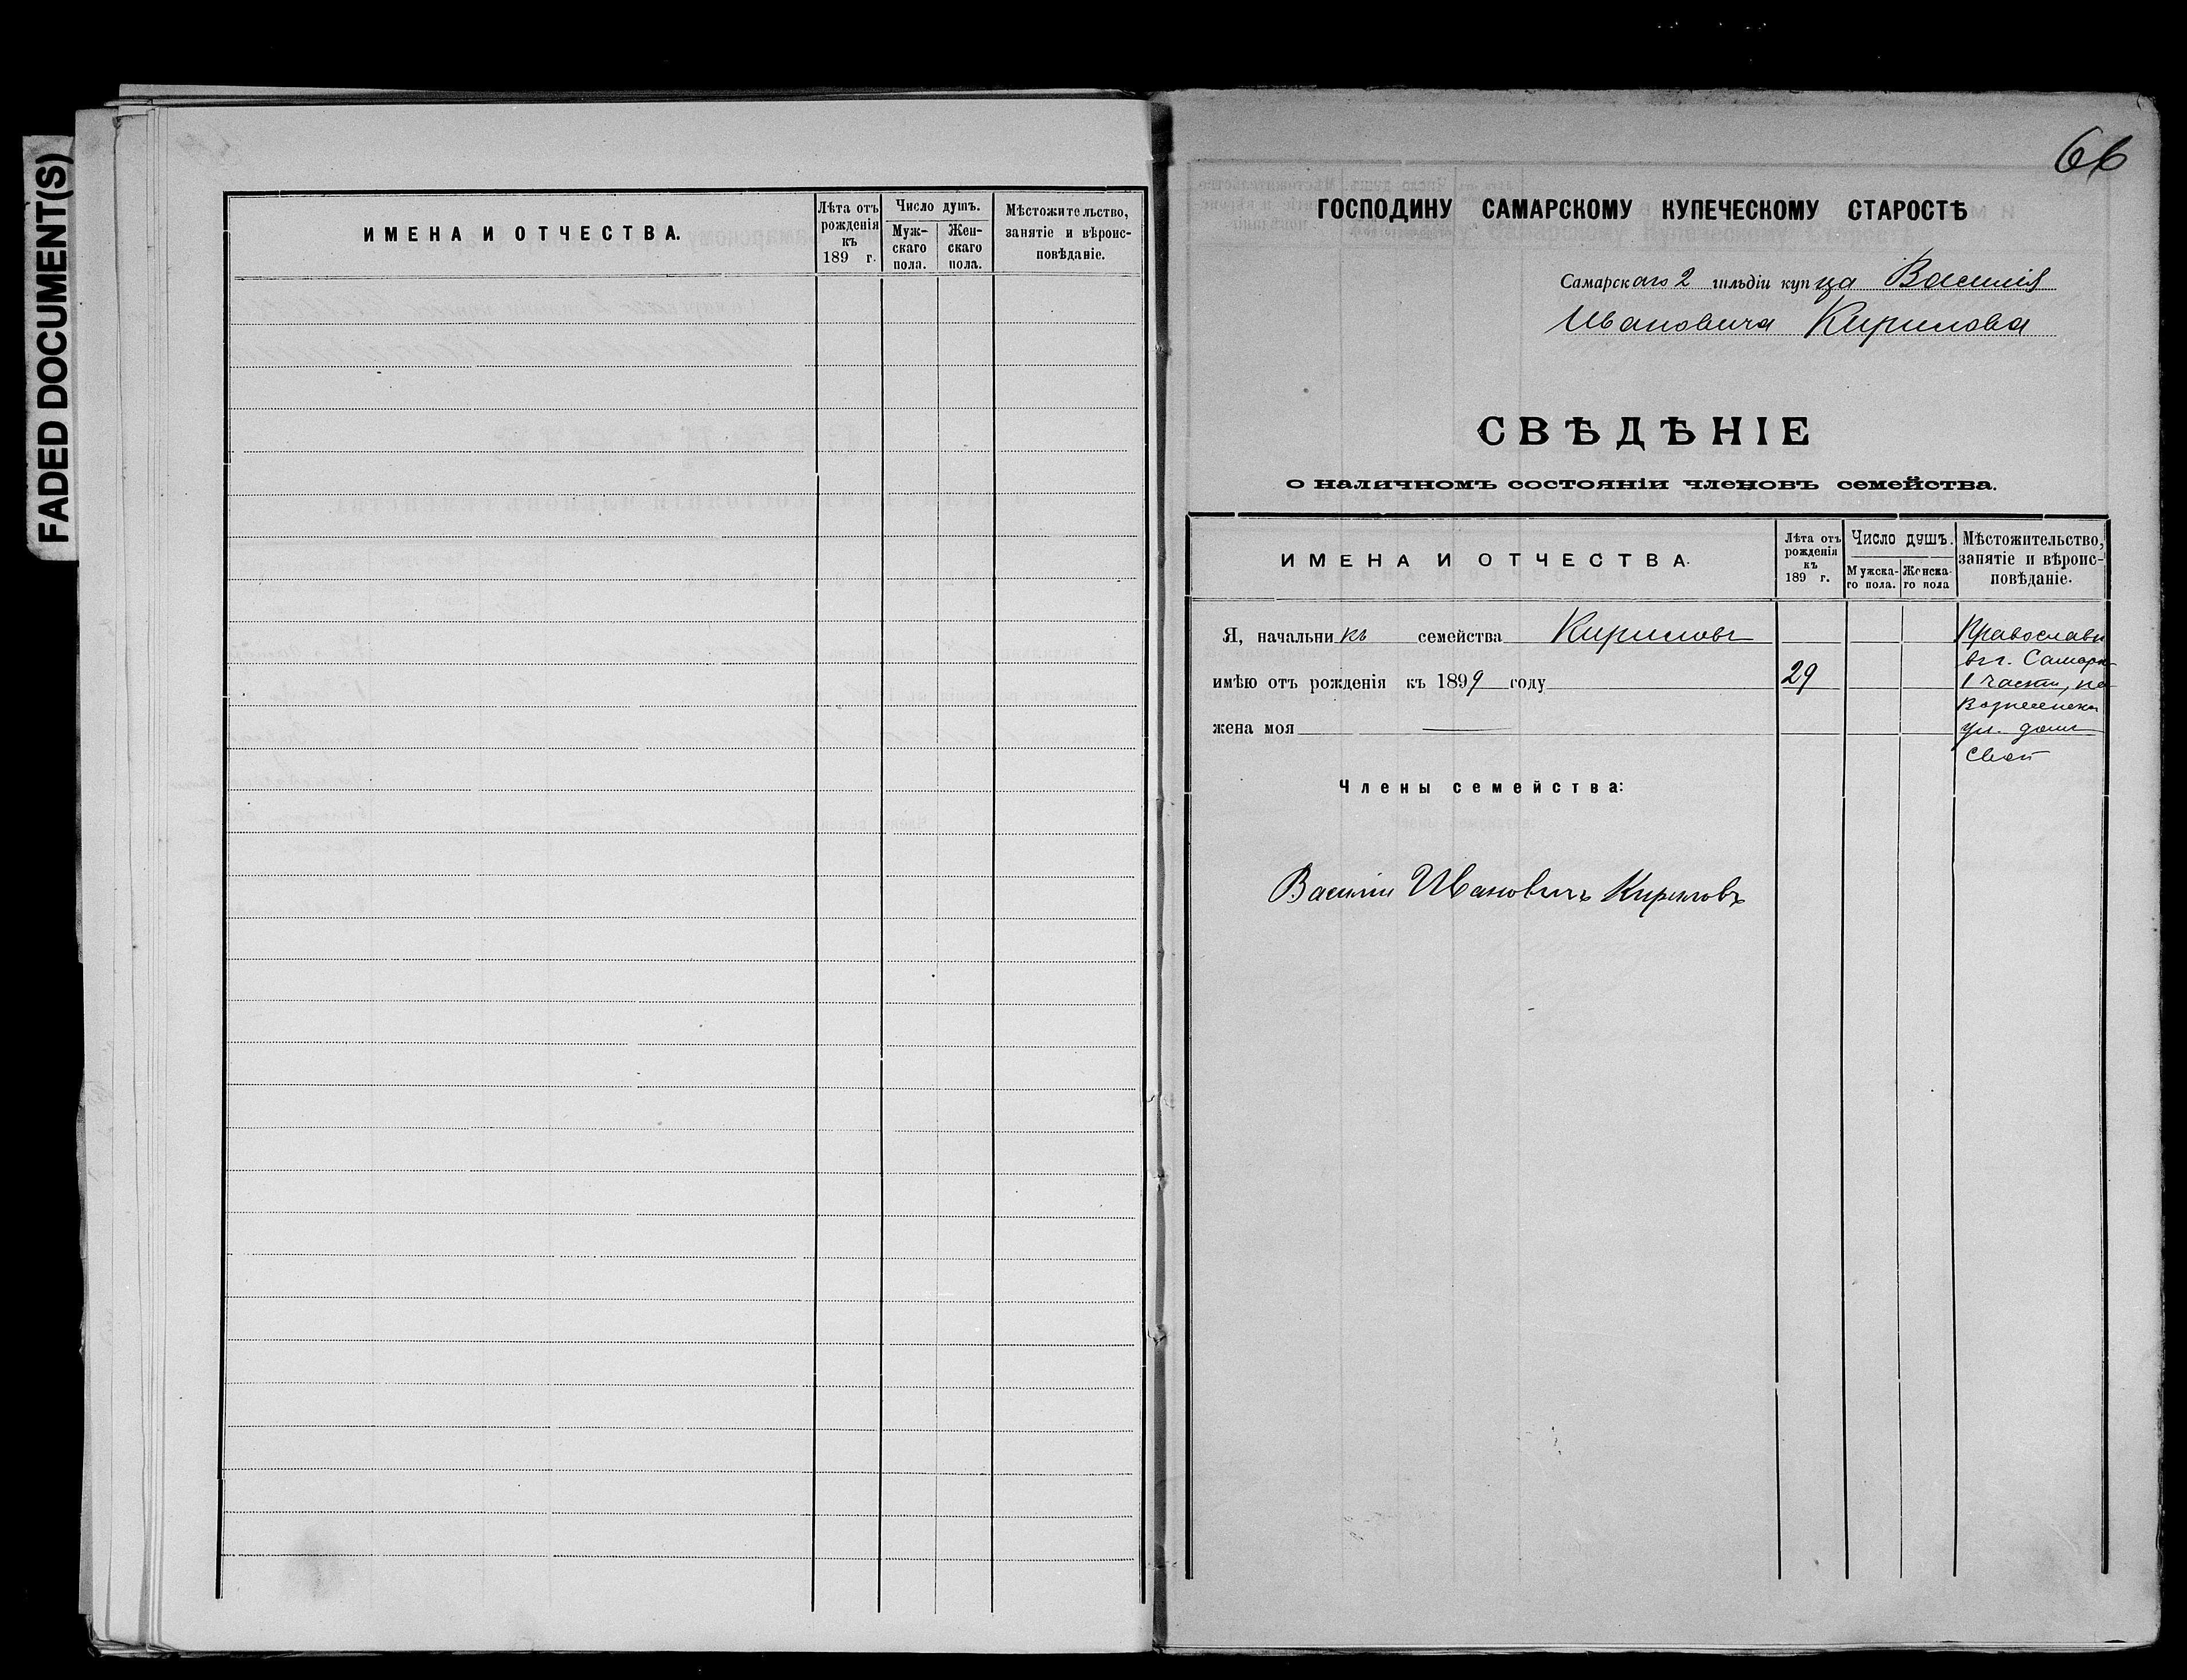 FADED DOCUMENT(S)
ИМЕНА И ОТЧЕСТВА.
Лѣта отъ рожденія къ 189 г.
Число душъ.
Мужскаго пола.
Женскаго пола.
Мѣстожительство, занятіе и вѣроисповѣданіе.
ГОСПОДИНУ САМАРСКОМУ КУПЕЧЕСКОМУ СТАРОСТѢ
Самарскаго 2 гильдіи купца Василія
Ивановича Кирилова
СВѢДѢНІЕ
о наличномъ состояніи членовъ семейства.
ИМЕНА И ОТЧЕСТВА.
Лѣта отъ рожденія къ 189 г.
Число душъ.
Мужскаго пола.
Женскаго пола
Мѣстожительство, занятіе и вѣроисповѣданіе.
Я, начальникъ семейства Кириловъ
имѣю отъ рожденія къ 1899 году 29
жена моя
Православн
въ г. Самарѣ
1 части, по
Вознесенск
ул. домъ
свой
Члены семейства:
Василій Ивановичъ Кириловъ